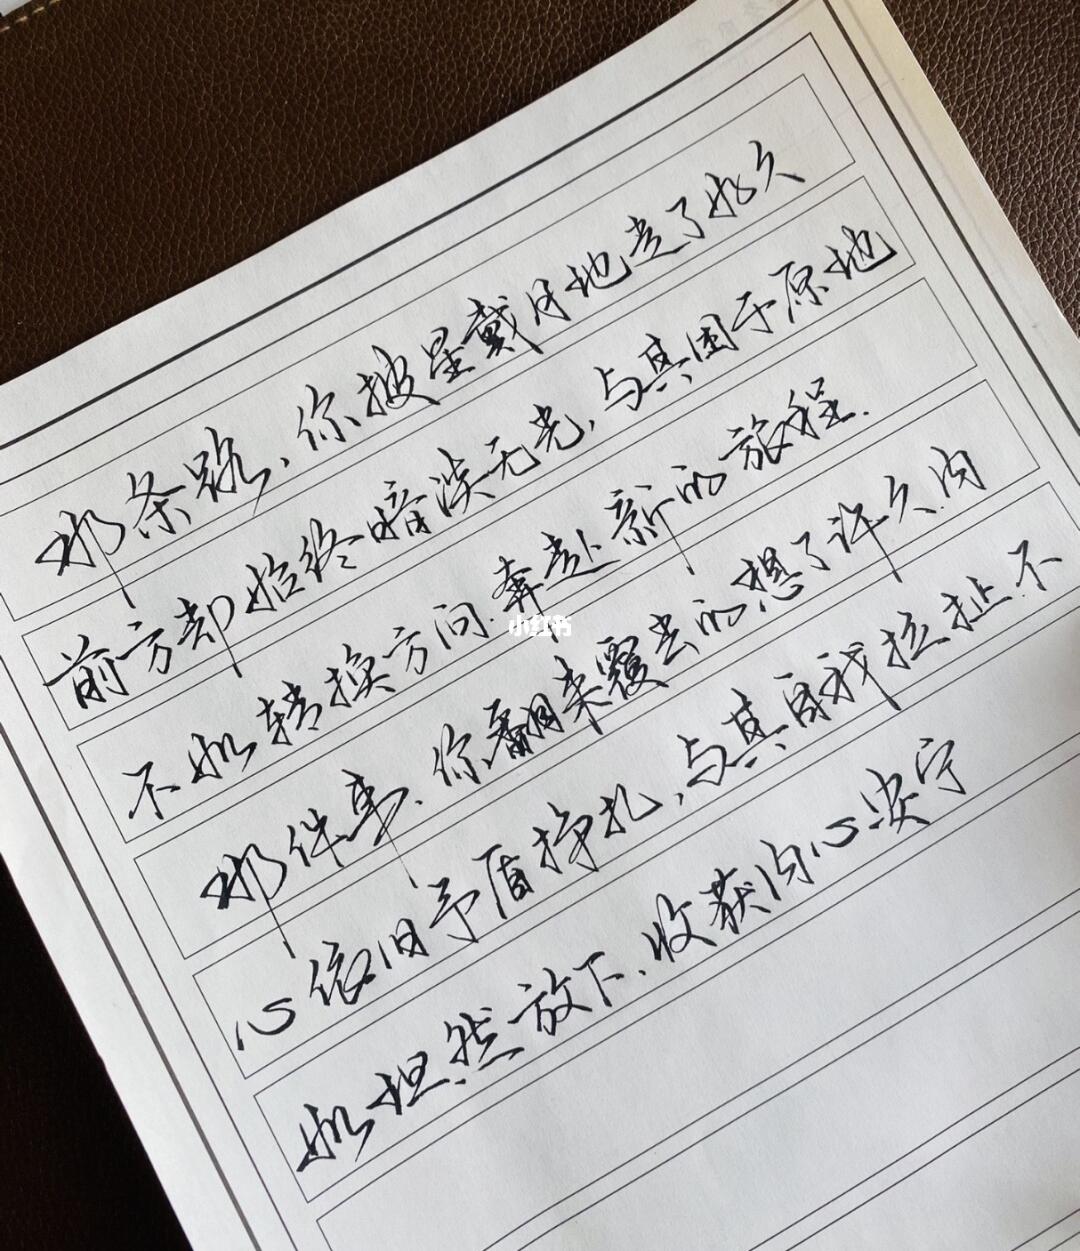 那条路，你披星戴月地走了好久
前方却始终暗淡无光，与其困于原地
不如转换方向.奔赴新的旅程.
小红书
那件事.你翻来覆去的想了许久.内
心依旧矛盾挣扎，与其自我拉扯.不
如坦然放下.收获内心安宁